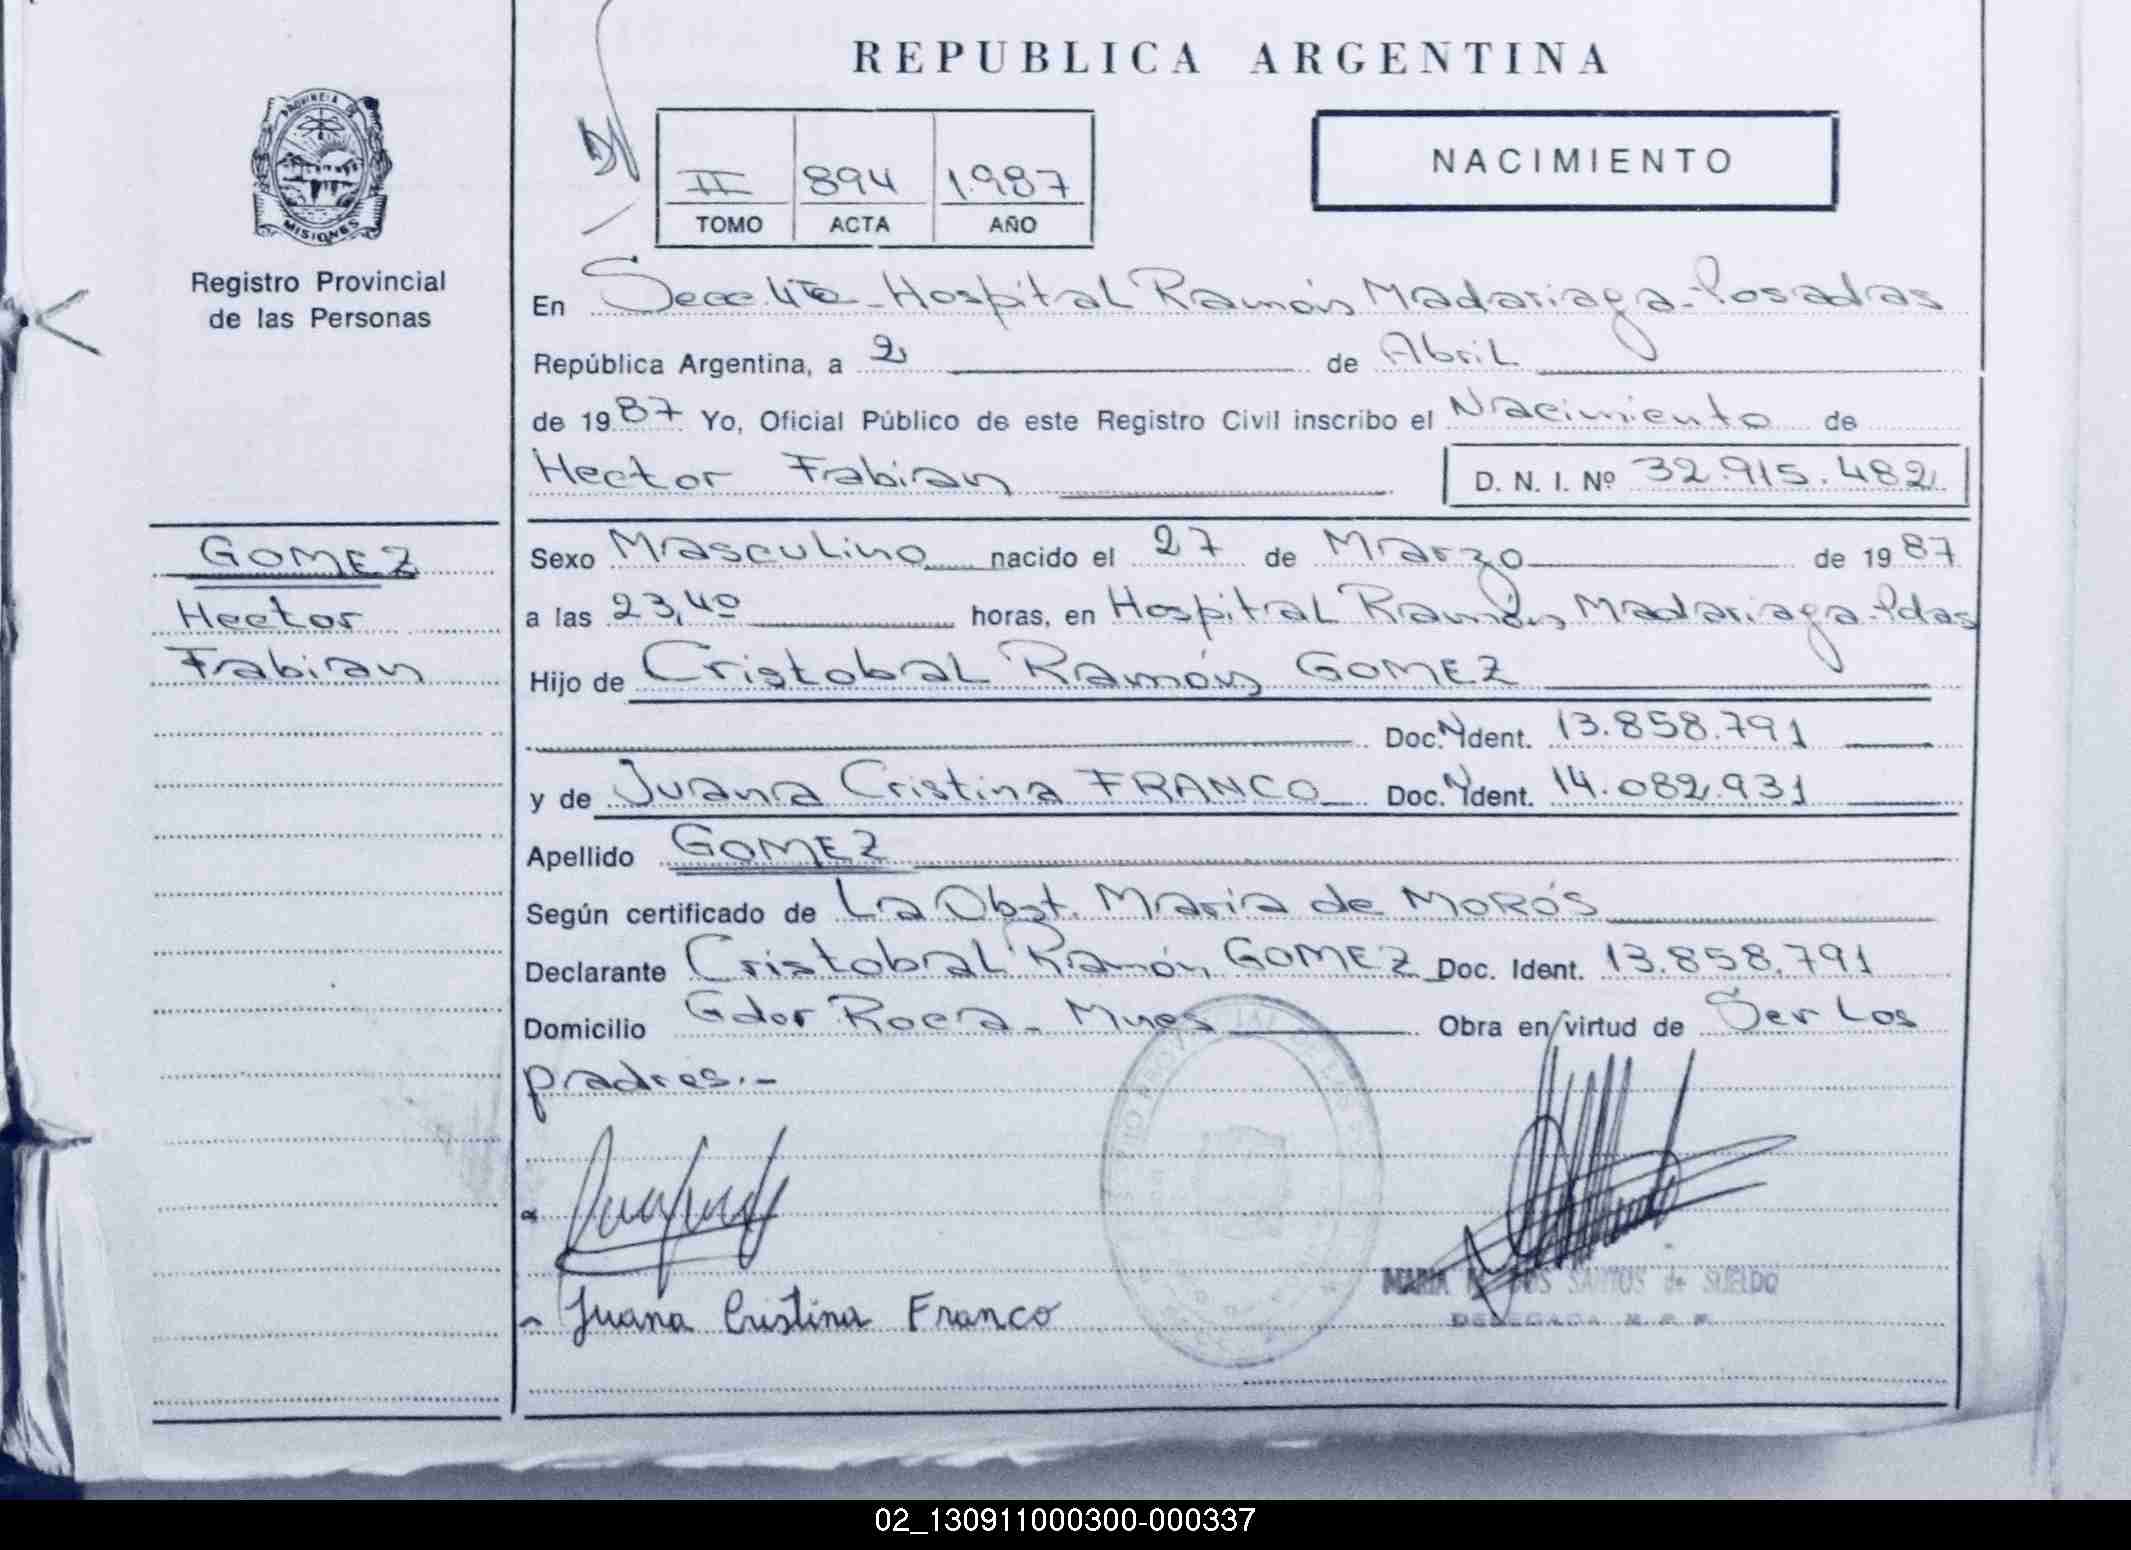 REPUBLICA ARGENTINA
PROVINCIA DE
MISIONES
Registro Provincial
de las Personas
II 894 1.987
TOMO ACTA AÑO
NACIMIENTO
En Secc. 4ta - Hospital Ramón Madariaga - Posadas
República Argentina, a 2 de Abril
de 1987 Yo, Oficial Público de este Registro Civil inscribo el Nacimiento de
Hector Fabian D. N. I. Nº 32.915.482
GOMEZ
Hector
Fabian
Sexo Masculino nacido el 27 de Marzo de 1987
a las 23,40 horas, en Hospital Ramón Madariaga - Pdas
Hijo de Cristobal Ramón GOMEZ
Doc. Ident. 13.858.791
y de Juana Cristina FRANCO Doc. Ident. 14.082.931
Apellido GOMEZ
Según certificado de La Obst. Maria de MORÓS
Declarante Cristobal Ramón GOMEZ Doc. Ident. 13.858.791
Domicilio Gdor Roca - Mnes Obra en virtud de Ser Los
padres.-
MARIA DOS SANTOS de SUELDO
DELEGADA
Juana Cristina Franco
02_130911000300-000337